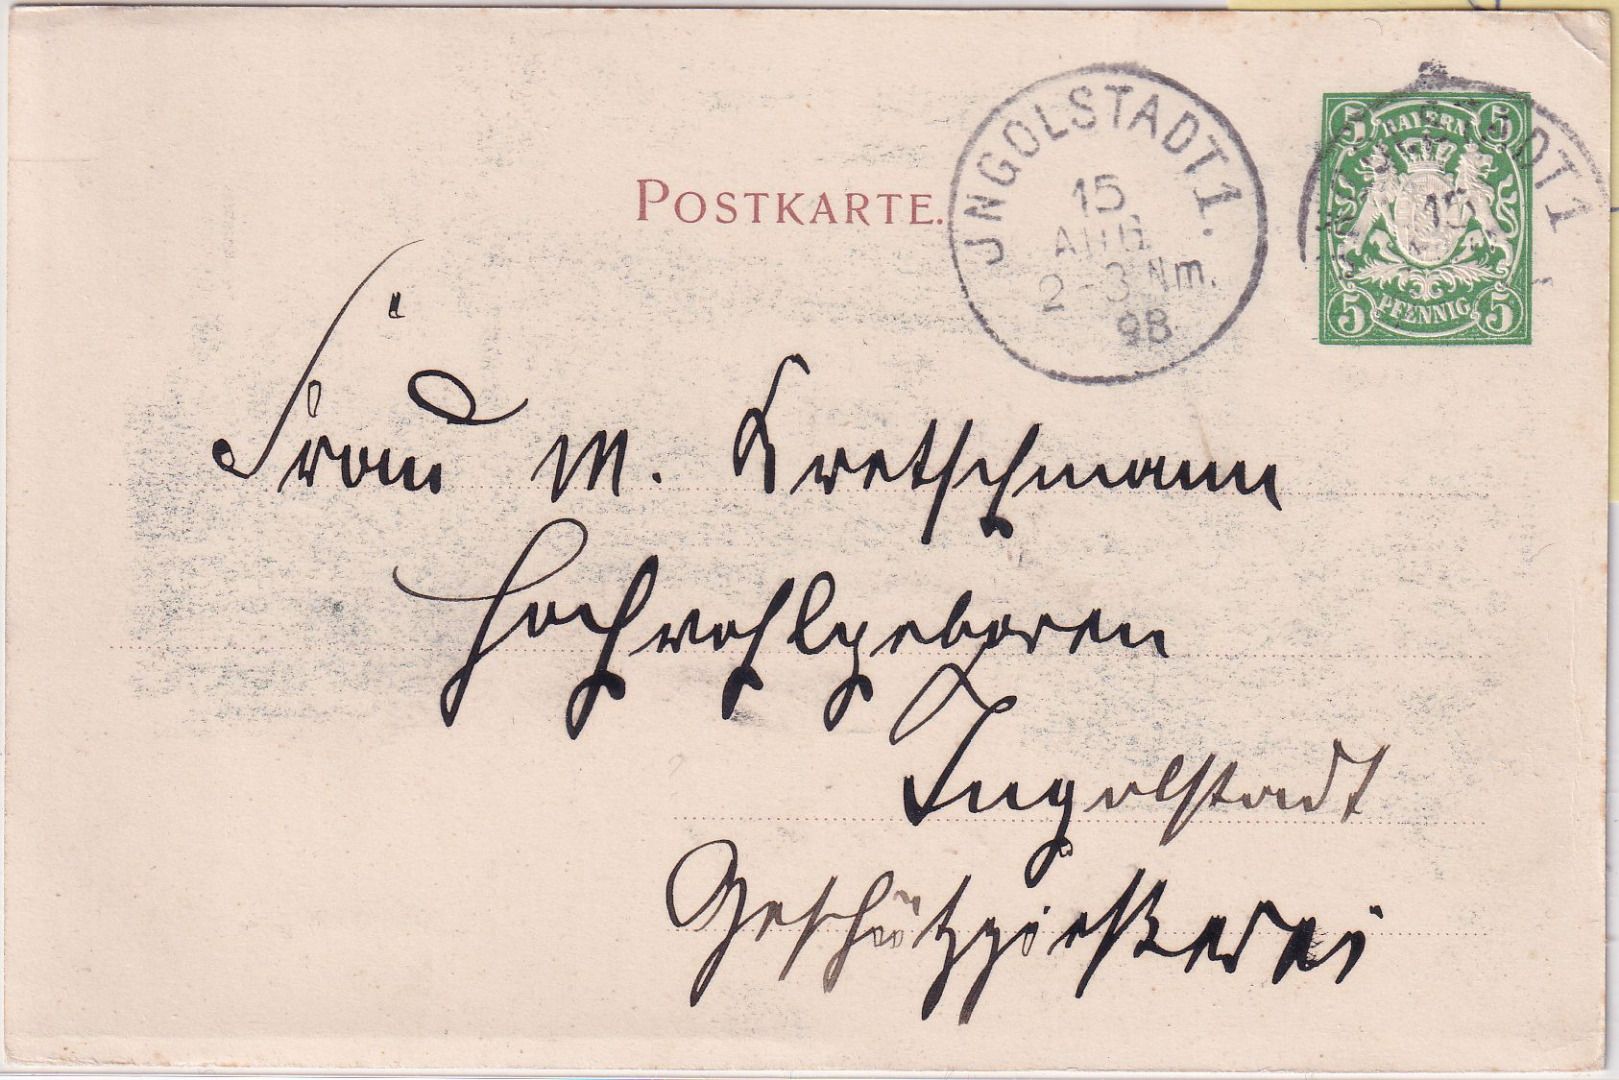 POSTKARTE.
JNGOLSTADT 1.
15
AUG
2-3 Nm.
98
5 BAYERN 5
15
5 PFENNIG 5
Frau M. Kretschmann
Hochwohlgeboren
Ingolstadt
Geschützgießerei